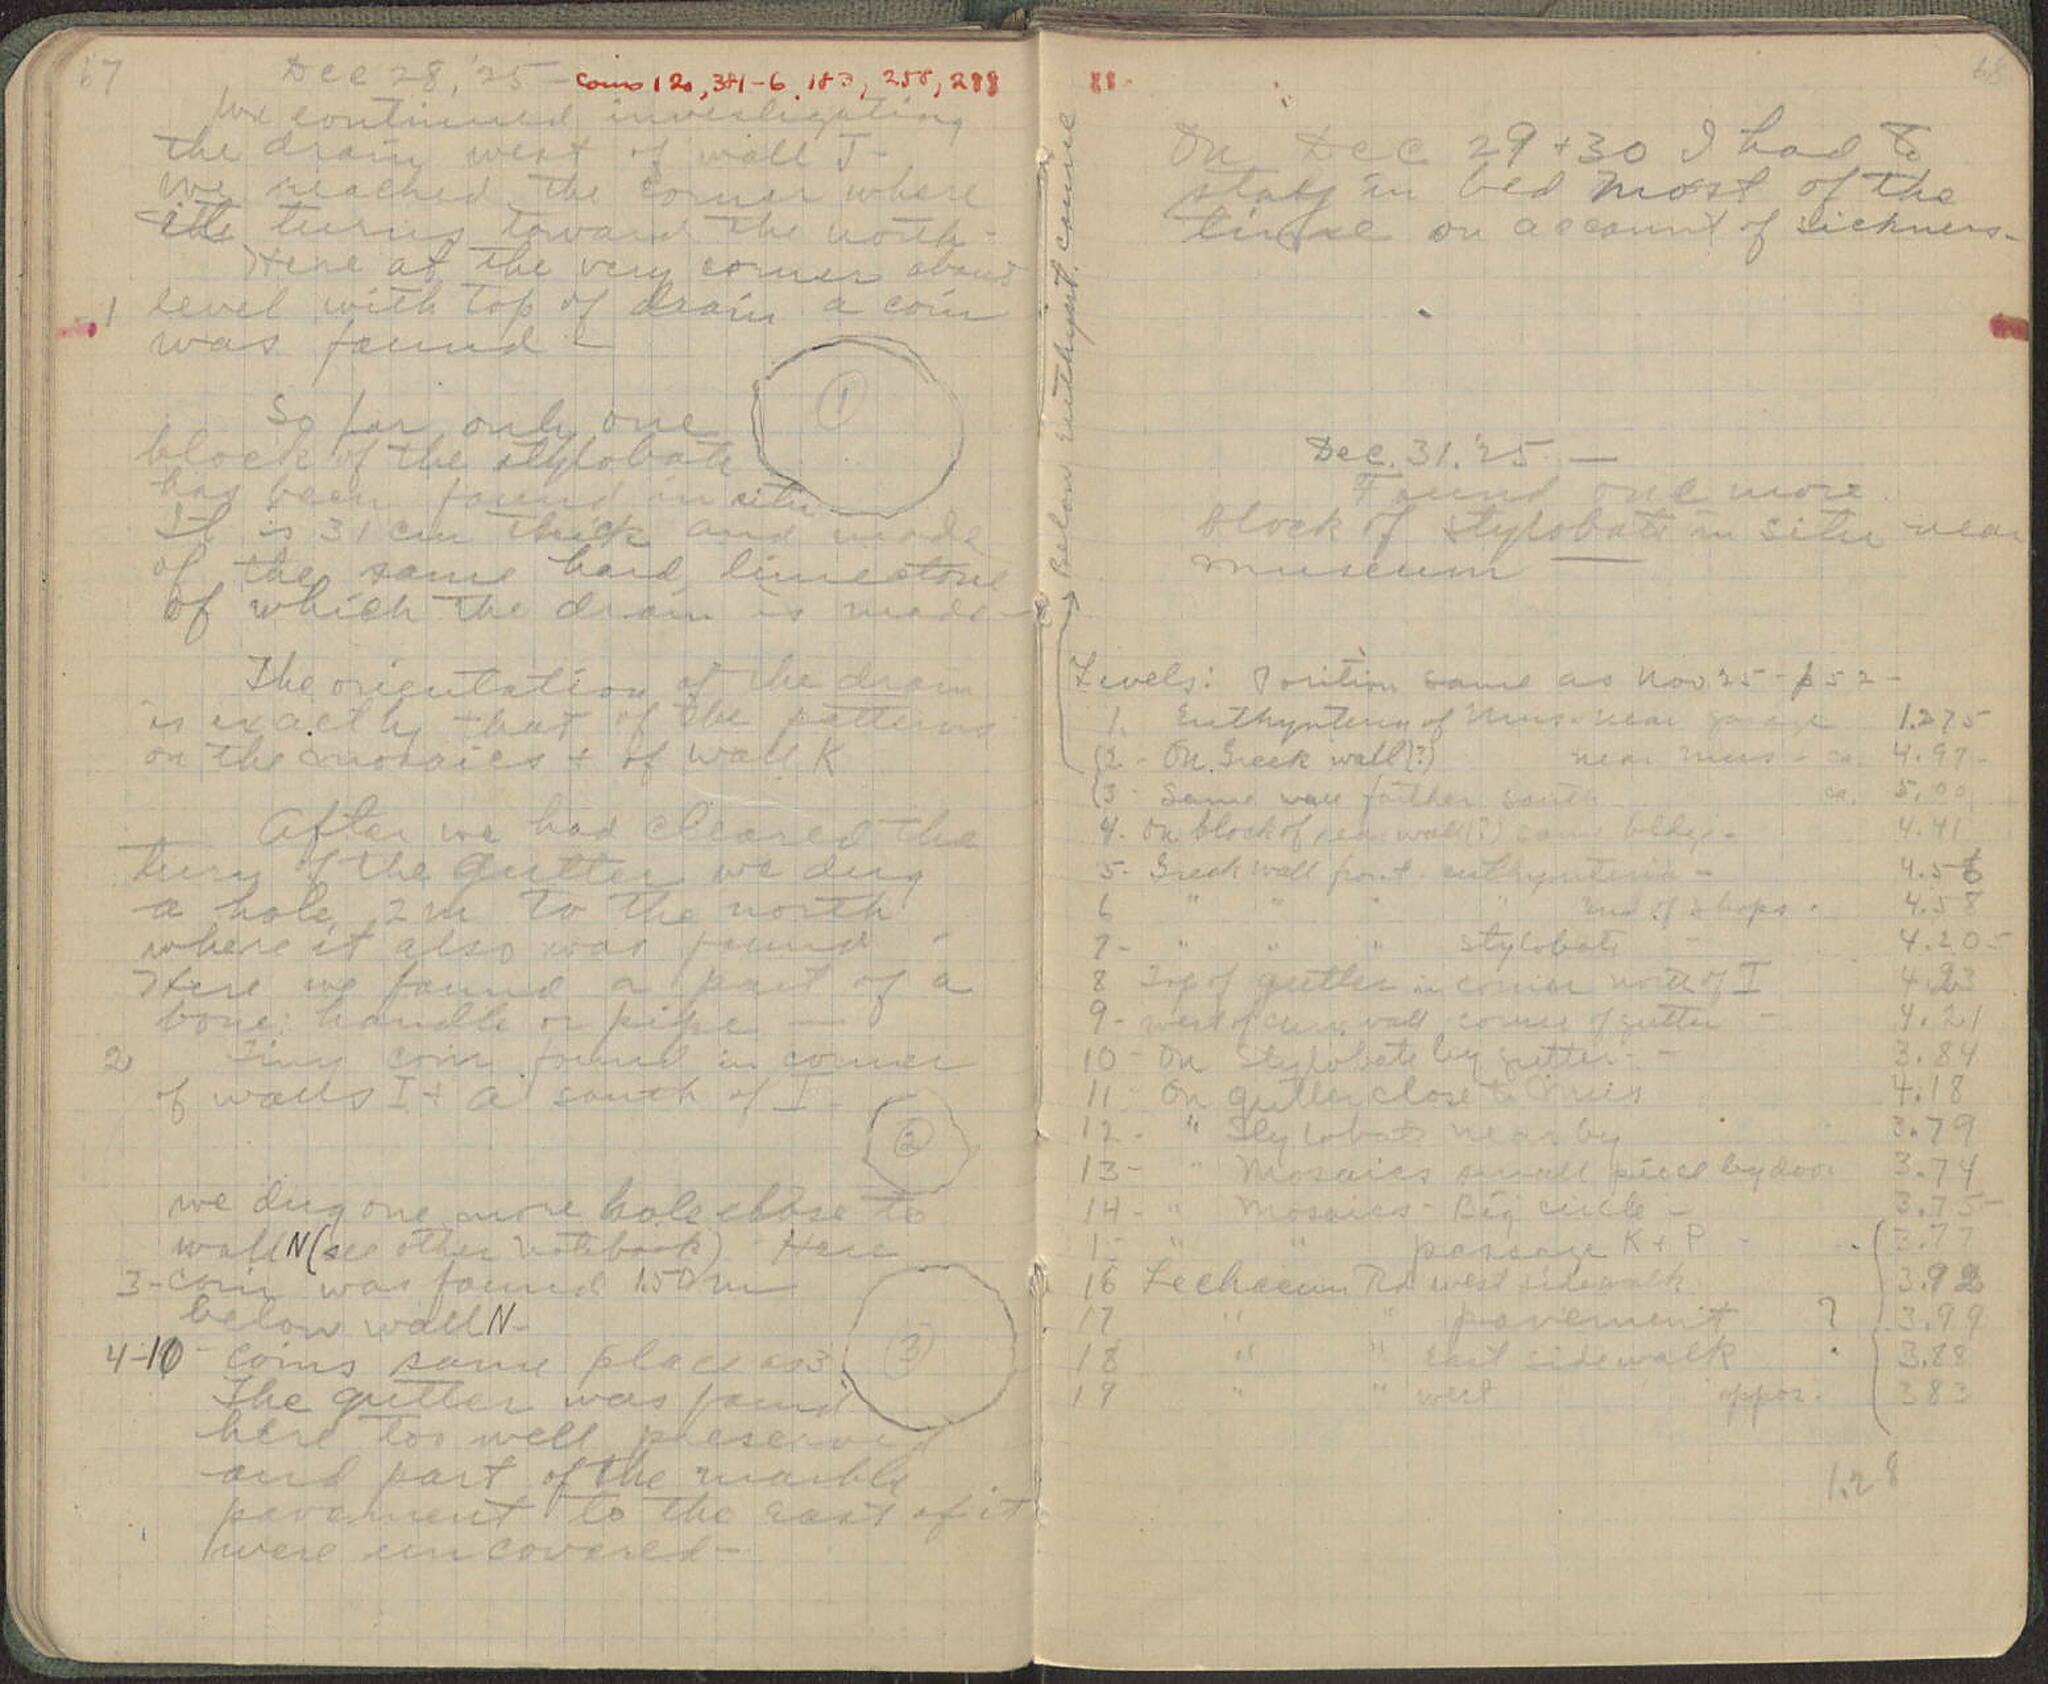 67
Dec 28, '25 - coins 120, 381-6, 183, 258, 288
We continued investigating
the drain west of wall J-
We reached the corner where
it turns toward the north-
Here at the very corner about
1 level with top of drain a coin
was found -
①
So far only one
block of the stylobate
has been found in situ
It is 31 cm thick and made
of the same hard limestone
of which the drain is made-
The orientation of the drain
is exactly that of the patterns
on the mosaics + of wall K
After we had cleared the
turn of the gutter we dug
a hole 2 m to the north
where it also was found -
Here we found a part of a
bone: handle or pipe —
2 Tiny coin found in corner
of walls I + a south of I-
②
we dug one more hole close to
wall N (see other notebook) Here
3- coin was found 1.50 m
below wall N-
③
4-10 - coins same place as 3
The gutter was found
here too well preserved
and part of the marble
pavement to the east of it
were uncovered-
68
88-
On Dec 29 + 30 I had to
stay in bed most of the
time on account of sickness-
Dec. 31. '25 —
Found one more
block of stylobate in situ near
museum —
→ Below Euthynt. course
Levels: Position same as Nov 25 - p 52 -
1. Euthynteria of Mus. near garage 1.275
(2- On Greek wall (?) near mus - ca. 4.97-
(3- Same wall farther south ca. 5.00
4- On block of wall (?) same bldg- 4.41
5- Greek wall front euthynteria - 4.56
6 " " " " end of shops. 4.58
7- " " " stylobate - 4.205
8 Top of gutter in corner north of I 4.23
9- west of wall corner of gutter - 4.21
10- On Stylobate by gutter- - 3.84
11- On gutter close to Mus 4.18
12- " Stylobate nearby 3.79
13- " Mosaics small piece by door 3.74
14- " Mosaics - Big circle - 3.75
15 " " passage K + P - 3.77
16 Lechaeum Rd west sidewalk 3.92
17 " " pavement ? 3.99
18 " " east sidewalk 3.88
19 " " west oppos. 383
1.28